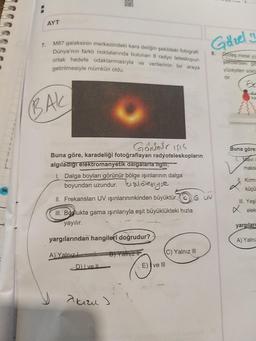 AYT
7. M87 galaksisinin merkezindeki kara deliğin şekildeki fotoğrafı
Dünya'nın farklı noktalarında bulunan 8 radyo teleskopun
ortak hedefe odaklanmasıyla ve verilerinin bir araya
getirilmesiyle mümkün oldu.
BAK
Görünür ışık
Buna göre, karadeliği fotoğraflayan radyoteleskopların
algıladığı elektromanyetik dalgalarla ilgili;
I. Dalga boyları görünür bölge ışınlarının dalga
boyundan uzundur.
II. Frekansları UV ışınlarınınkinden büyüktür.
G UV
III. Boşlukta gama ışınlarıyla eşit büyüklükteki hızla
yayılır.
yargılarından hangileri doğrudur?
A) Yalnız I
B) Yalnız II
C) Yalnız III
D) I ve II
E) I ve III
8.
Buna göre
I. Mavi
II. Kırmı
küçü
III. Yeşi
elek
yargıları
A) Yalnı